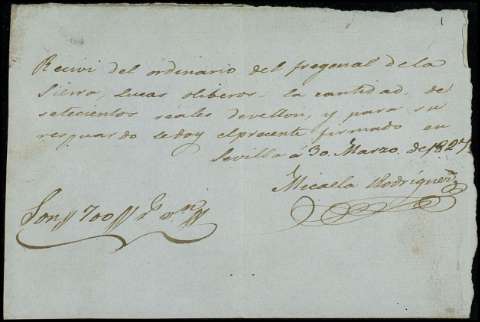 Recivi del ordinario del fregenal de la
Sierra, Lucas oliberos, la cantidad de
setecientos reales de vellon, y para su
resguardo le doy el presente firmado en
Sevilla á 30, Marzo, de 1827,
Micaela Rodriguez
Son 700 rs vn